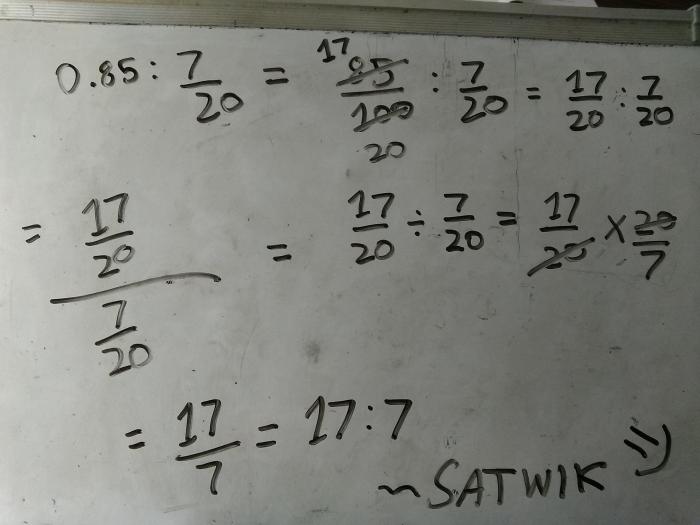 0.85 : 7/20 = 85/100 17/20 : 7/20 = 17/20 : 7/20
= 17/20 / 7/20 = 17/20 ÷ 7/20 = 17/20 × 20/7
= 17/7 = 17:7
~ SATWIK =)